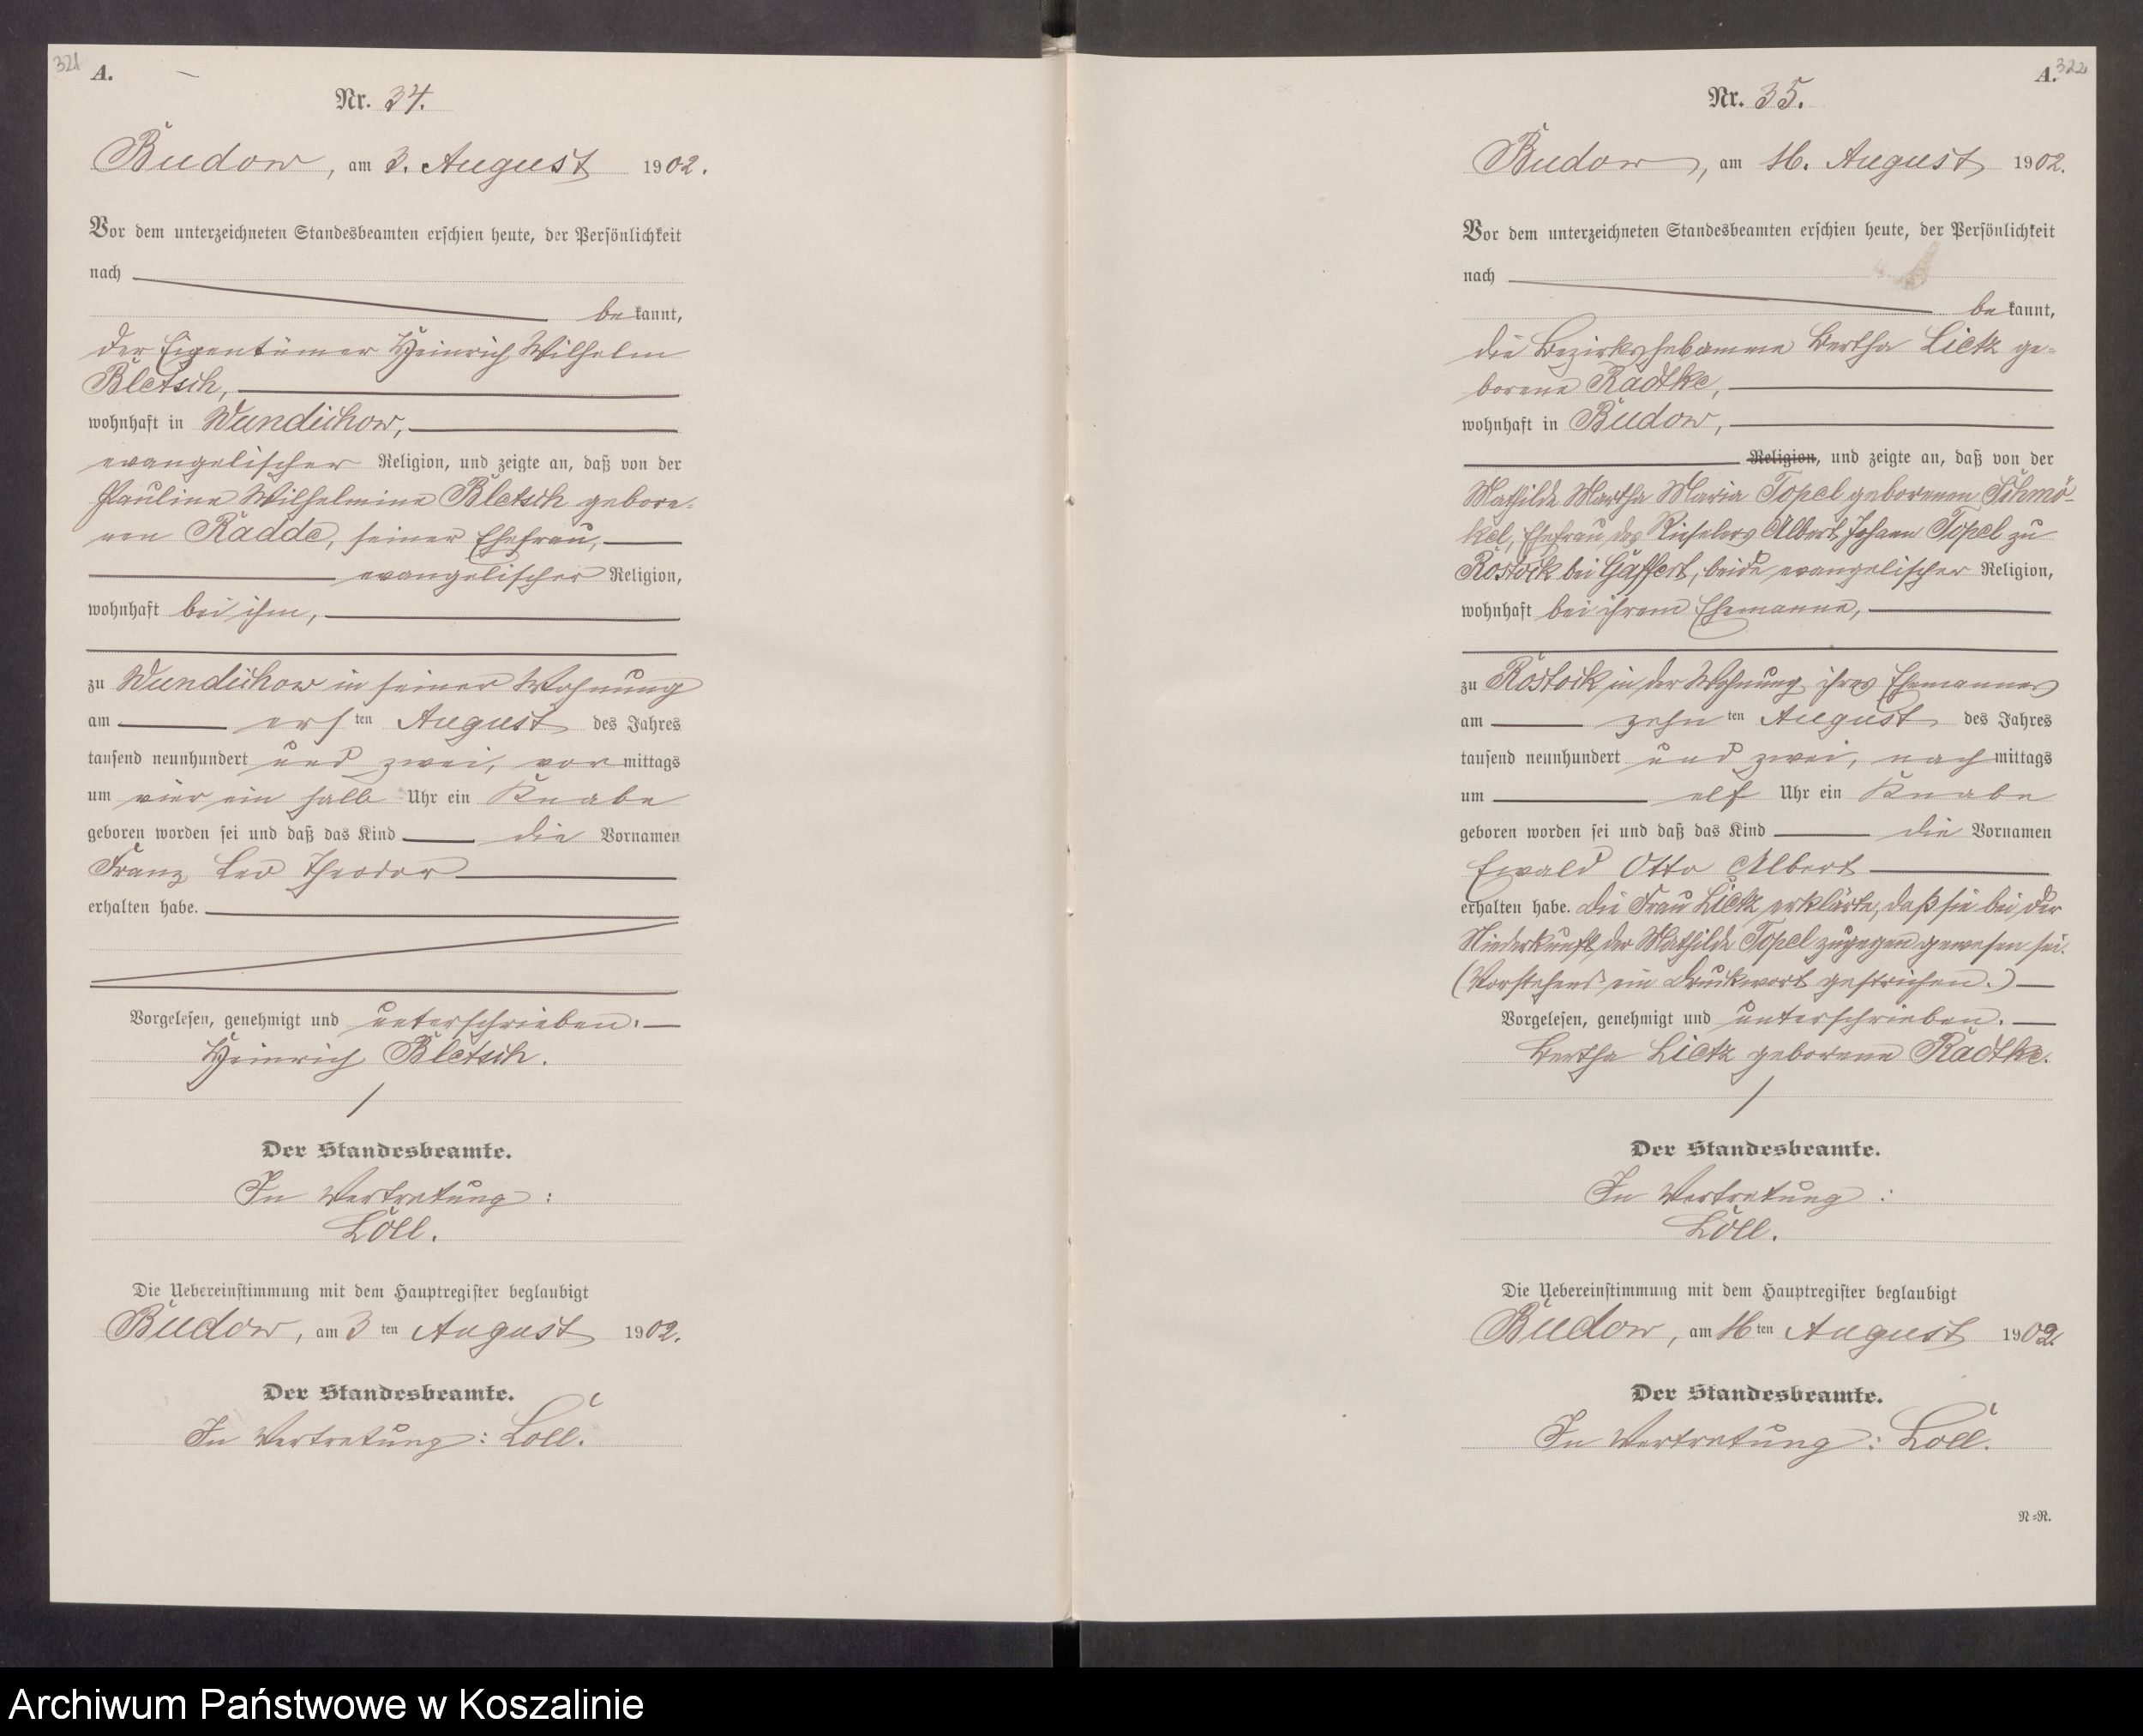 321
A.
Nr. 34.
Budow, am 3. August 1902.
Vor dem unterzeichneten Standesbeamten erschien heute, der Persönlichkeit
nach
bekannt,
der Eigentümer Heinrich Wilhelm
Bletsch,
wohnhaft in Wundichow,
evangelischer Religion, und zeigte an, daß von der
Pauline Wilhelmine Bletsch gebore-
nen Radde, seiner Ehefrau,
evangelischer Religion,
wohnhaft bei ihm,
zu Wundichow in seiner Wohnung
am ersten August des Jahres
tausend neunhundert und zwei, vormittags
um vier ein halb Uhr ein Knabe
geboren worden sei und daß das Kind die Vornamen
Franz Leo Theodor
erhalten habe.
Vorgelesen, genehmigt und unterschrieben.
Heinrich Bletsch.
Der Standesbeamte.
In Vertretung:
Löll.
Die Uebereinstimmung mit dem Hauptregister beglaubigt
Budow, am 3ten August 1902.
Der Standesbeamte.
In Vertretung: Löll.
322
A.
Nr. 35.
Budow, am 16. August 1902.
Vor dem unterzeichneten Standesbeamten erschien heute, der Persönlichkeit
nach
bekannt,
die Bezirkshebamme Bertha Lietz ge-
borene Radtke,
wohnhaft in Budow,
Religion, und zeigte an, daß von der
Mathilde Martha Maria Topel geborenen Schmö-
kel, Ehefrau des Rieselers Albert Johann Topel zu
Rostock bei Gaffert, beide evangelischer Religion,
wohnhaft bei ihrem Ehemanne,
zu Rostock in der Wohnung ihres Ehemannes
am zehnten August des Jahres
tausend neunhundert und zwei, nachmittags
um elf Uhr ein Knabe
geboren worden sei und daß das Kind die Vornamen
Ewald Otto Albert
erhalten habe. Die Frau Lietz erklärte, daß sie bei der
Niederkunft der Mathilde Topel zugegen gewesen sei.
(Vorstehend ein Druckwort gestrichen.)
Vorgelesen, genehmigt und unterschrieben.
Bertha Lietz geborene Radtke.
Der Standesbeamte.
In Vertretung:
Löll.
Die Uebereinstimmung mit dem Hauptregister beglaubigt
Budow, am 16ten August 1902.
Der Standesbeamte.
In Vertretung: Löll.
N=R.
Archiwum Państwowe w Koszalinie